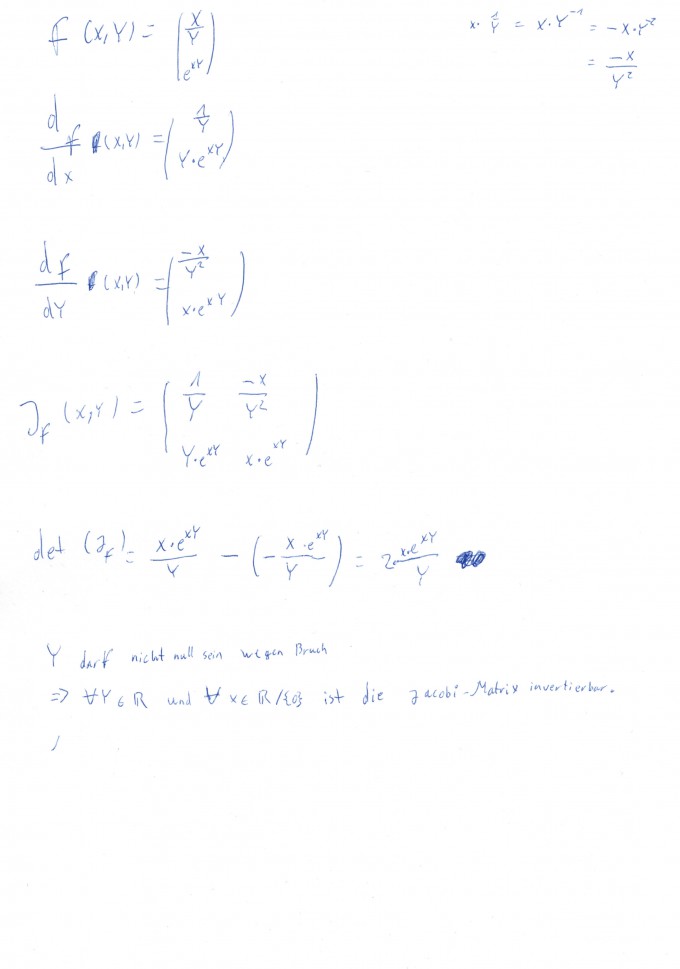 f (x,Y) = (x/Y, e^{xY})
x · 1/Y = x · Y^{-1} = -x · Y^{-2}
= -x/Y²
d/dx f (x,Y) = (1/Y, Y·e^{xY})
df/dY (x,Y) = (-x/Y², x·e^{xY})
J_f (x,Y) = (1/Y -x/Y²
Y·e^{xY} x·e^{xY})
det (J_f) = x·e^{xY}/Y - (- x·e^{xY}/Y) = 2·x·e^{xY}/Y
Y darf nicht null sein wegen Bruch
=> ∀Y∈ℝ und ∀ x∈ℝ/{0} ist die Jacobi-Matrix invertierbar.